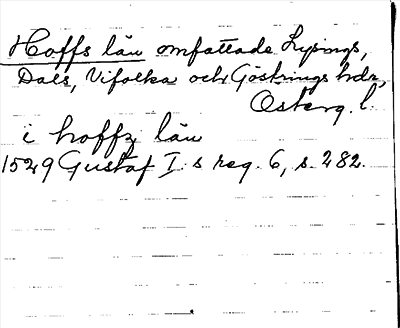 Hoffs län omfattade Lysings,
Dals, Vifolka och Göstrings hdr,
Österg. l.
i hoffz län
1529 Gustaf I:s reg. 6, s. 282.